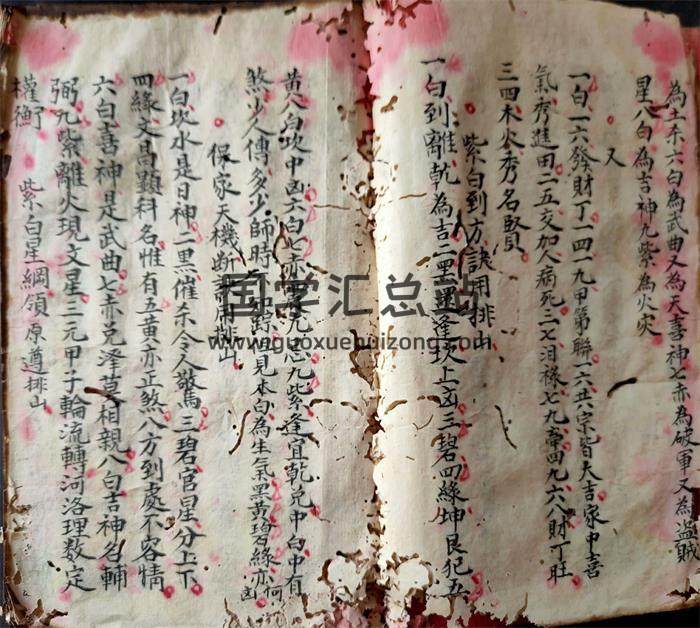 為土系六白為武曲又為天喜神七赤為破軍又為盜賊
星八白為吉神九紫為火灾
又
一白一六發財丁一四一九甲第聯一六五八宗皆大吉家中喜
氣秀進田二五交加人病死三七泪祿七九帝四九六八財丁旺
三四木火秀名賢
紫白到方訣用排山
一白到離乾為吉二黑逢坎上凶三碧四緣坤艮犯五
黄八白坎中凶六白七赤九紫逢宜乾兑中白中有
煞少人傳多少師時見本白為生氣黑黄碧綠亦何凶
保家天機断訣用排山
一白坎水是日神二黑催杀令人驚三碧官星分上下
四緣文昌顯科名惟有五黄亦正煞八方到處不容情
六白喜神是武曲七赤兑澤莫相親八白吉神名輔
弼九紫離火現文星三元甲子輪流轉河洛理数定
權衡
紫白星綱領原遵排山
国学汇总站
www.guoxuehuizong.com